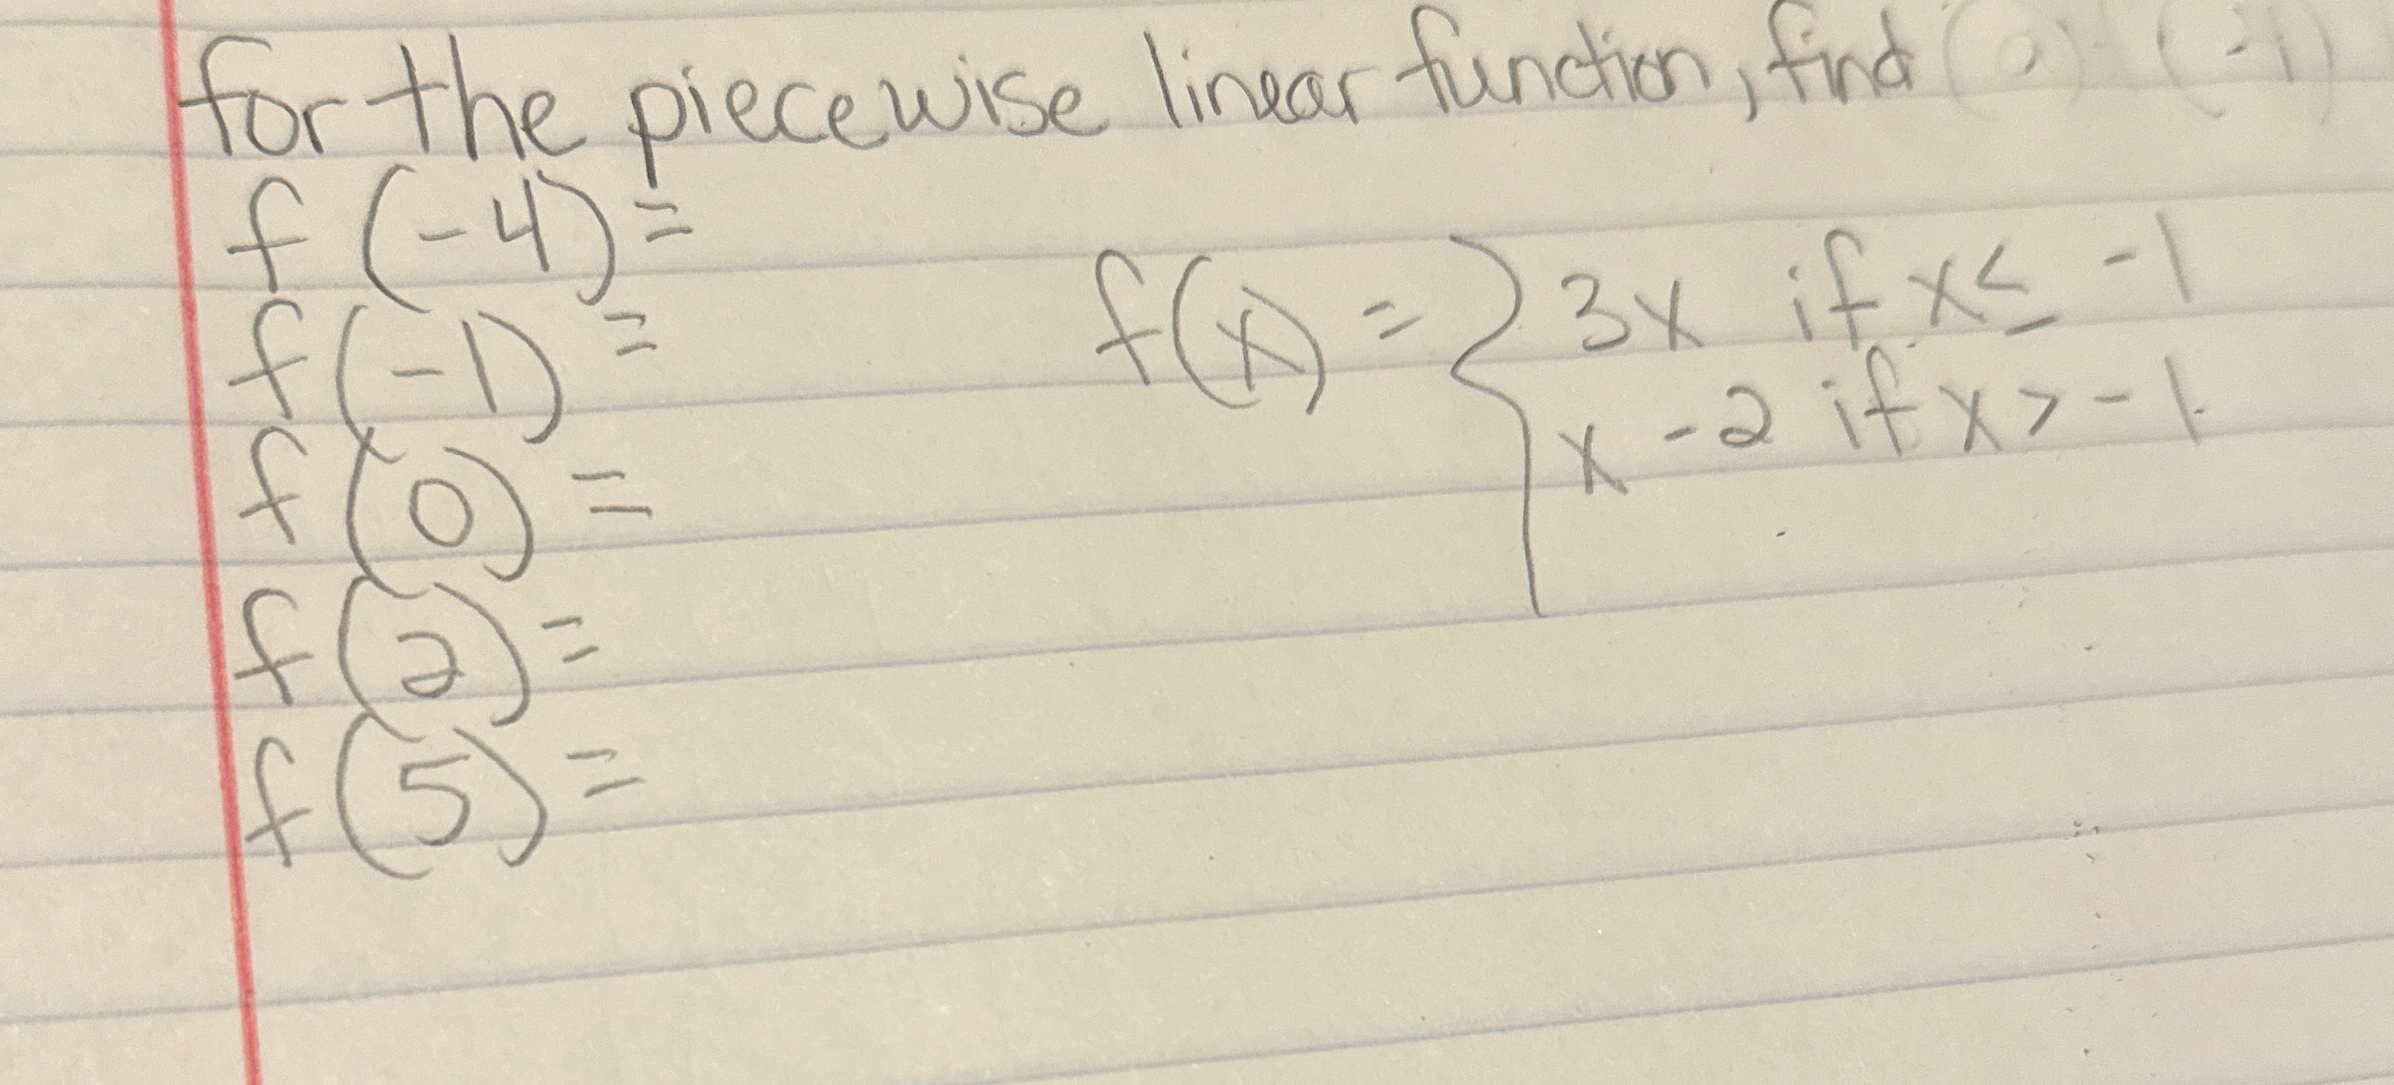 for the piecewise linear function, find
f(-4)=
f(-1)=
f(0)=
f(2)=
f(5)=
f(x) = { 3x if x ≤ -1
x - 2 if x > -1